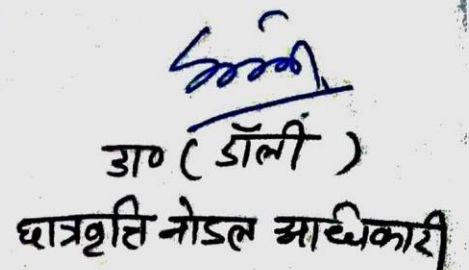 डा० ( डॉली )
छात्रवृत्ति नोडल अधिकारी